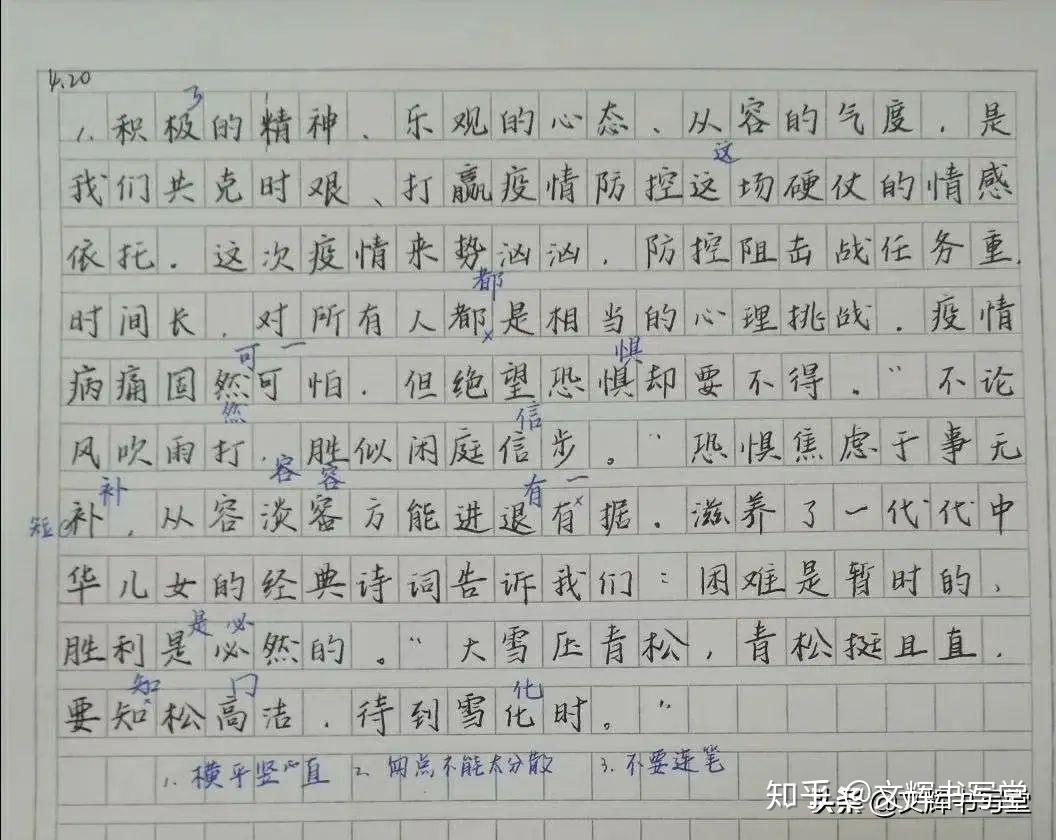 4.20
1. 积极的精神、乐观的心态、从容的气度，是
我们共克时艰、打赢疫情防控这场硬仗的情感
依托。这次疫情来势汹汹，防控阻击战任务重，
时间长，对所有人都是相当的心理挑战。疫情
病痛固然可怕，但绝望恐惧却要不得。“不论
风吹雨打，胜似闲庭信步。”恐惧焦虑于事无
补，从容淡容方能进退有据。滋养了一代代中
华儿女的经典诗词告诉我们：困难是暂时的，
胜利是必然的。“大雪压青松，青松挺且直，
要知松高洁，待到雪化时。”
1. 横平竖直 2. 两点不能太分散 3. 不要连笔
知乎 @文辉书写堂
头条 @文辉书写堂